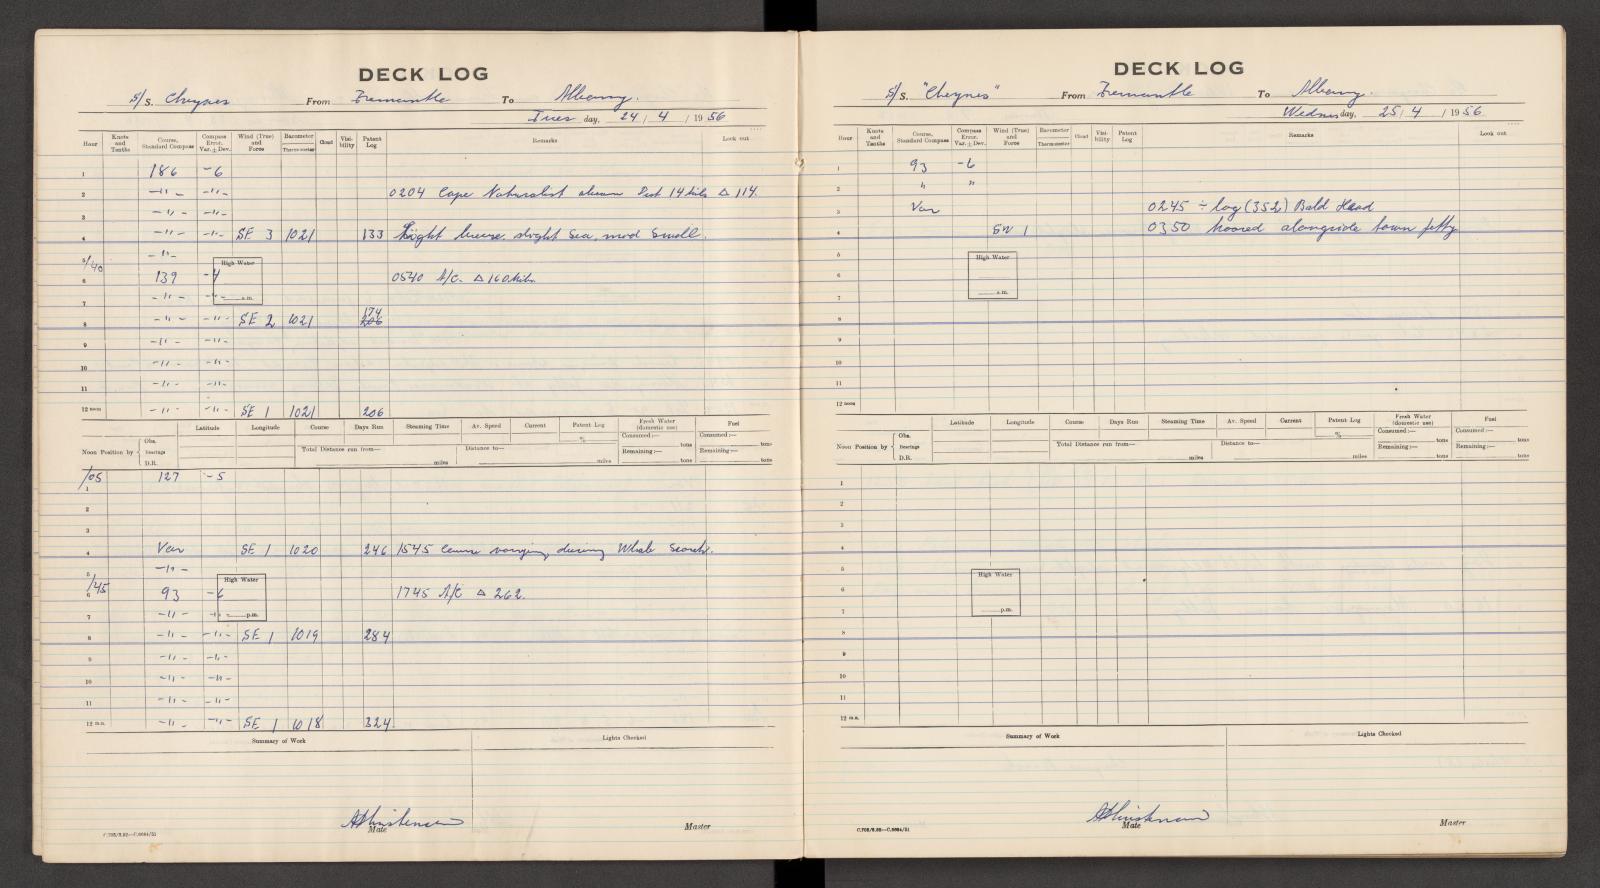 DECK LOG
S/S. Cheynes From Fremantle To Albany.
Tues day, 24 / 4 / 1956
Hour Knots and Tenths Course, Standard Compass Compass Error. Var. ± Dev. Wind (True) and Force Barometer Thermometer Cloud Visibility Patent Log Remarks Look out
1 186 -6
2 -"- -"- 0204 Cape Naturalist abeam Dist 14 mls △ 114.
3 -"- -"-
4 -"- -"- SE 3 1021 133 Light breeze, slight Sea, mod Swell.
5/40 -"-
High Water
6 139 -4 0540 A/C. △ 160 mls.
7 -"- -"- a.m.
174
8 -"- -"- SE 2 1021 206
9 -"- -"-
10 -"- -"-
11 -"- -"-
12 noon -"- -"- SE 1 1021 206
Latitude Longitude Course Days Run Steaming Time Av. Speed Current Patent Log % Fresh Water (domestic use) Fuel
Noon Position by Obs. Bearings D.R.
Total Distance run from— miles Distance to— miles
Consumed:— tons Consumed:— tons
Remaining:— tons Remaining:— tons
/05 127 -5
1
2
3
4 Var SE 1 1020 246 1545 Course varying during Whale Search.
5 -"-
/45 High Water
6 93 -6 1745 A/C △ 262.
7 -"- -"- p.m.
8 -"- -"- SE 1 1019 284
9 -"- -"-
10 -"- -"-
11 -"- -"-
12 m.n. -"- -"- SE 1 1018 324.
Summary of Work Lights Checked
AChristensen
Mate Master
C.705/8.52—C.9694/51
DECK LOG
S/S. "Cheynes" From Fremantle To Albany.
Wednesday, 25 / 4 / 1956
Hour Knots and Tenths Course, Standard Compass Compass Error. Var. ± Dev. Wind (True) and Force Barometer Thermometer Cloud Visibility Patent Log Remarks Look out
1 93 -6
2 " "
3 Var 0245 ÷ log (352) Bald Head
4 SW 1 0350 Moored alongside town jetty
5
High Water
6
7 a.m.
8
9
10
11
12 noon
Latitude Longitude Course Days Run Steaming Time Av. Speed Current Patent Log % Fresh Water (domestic use) Fuel
Noon Position by Obs. Bearings D.R.
Total Distance run from— miles Distance to— miles
Consumed:— tons Consumed:— tons
Remaining:— tons Remaining:— tons
1
2
3
4
5
High Water
6
7 p.m.
8
9
10
11
12 m.n.
Summary of Work Lights Checked
AChristensen
Mate Master
C.705/8.52—C.9694/51